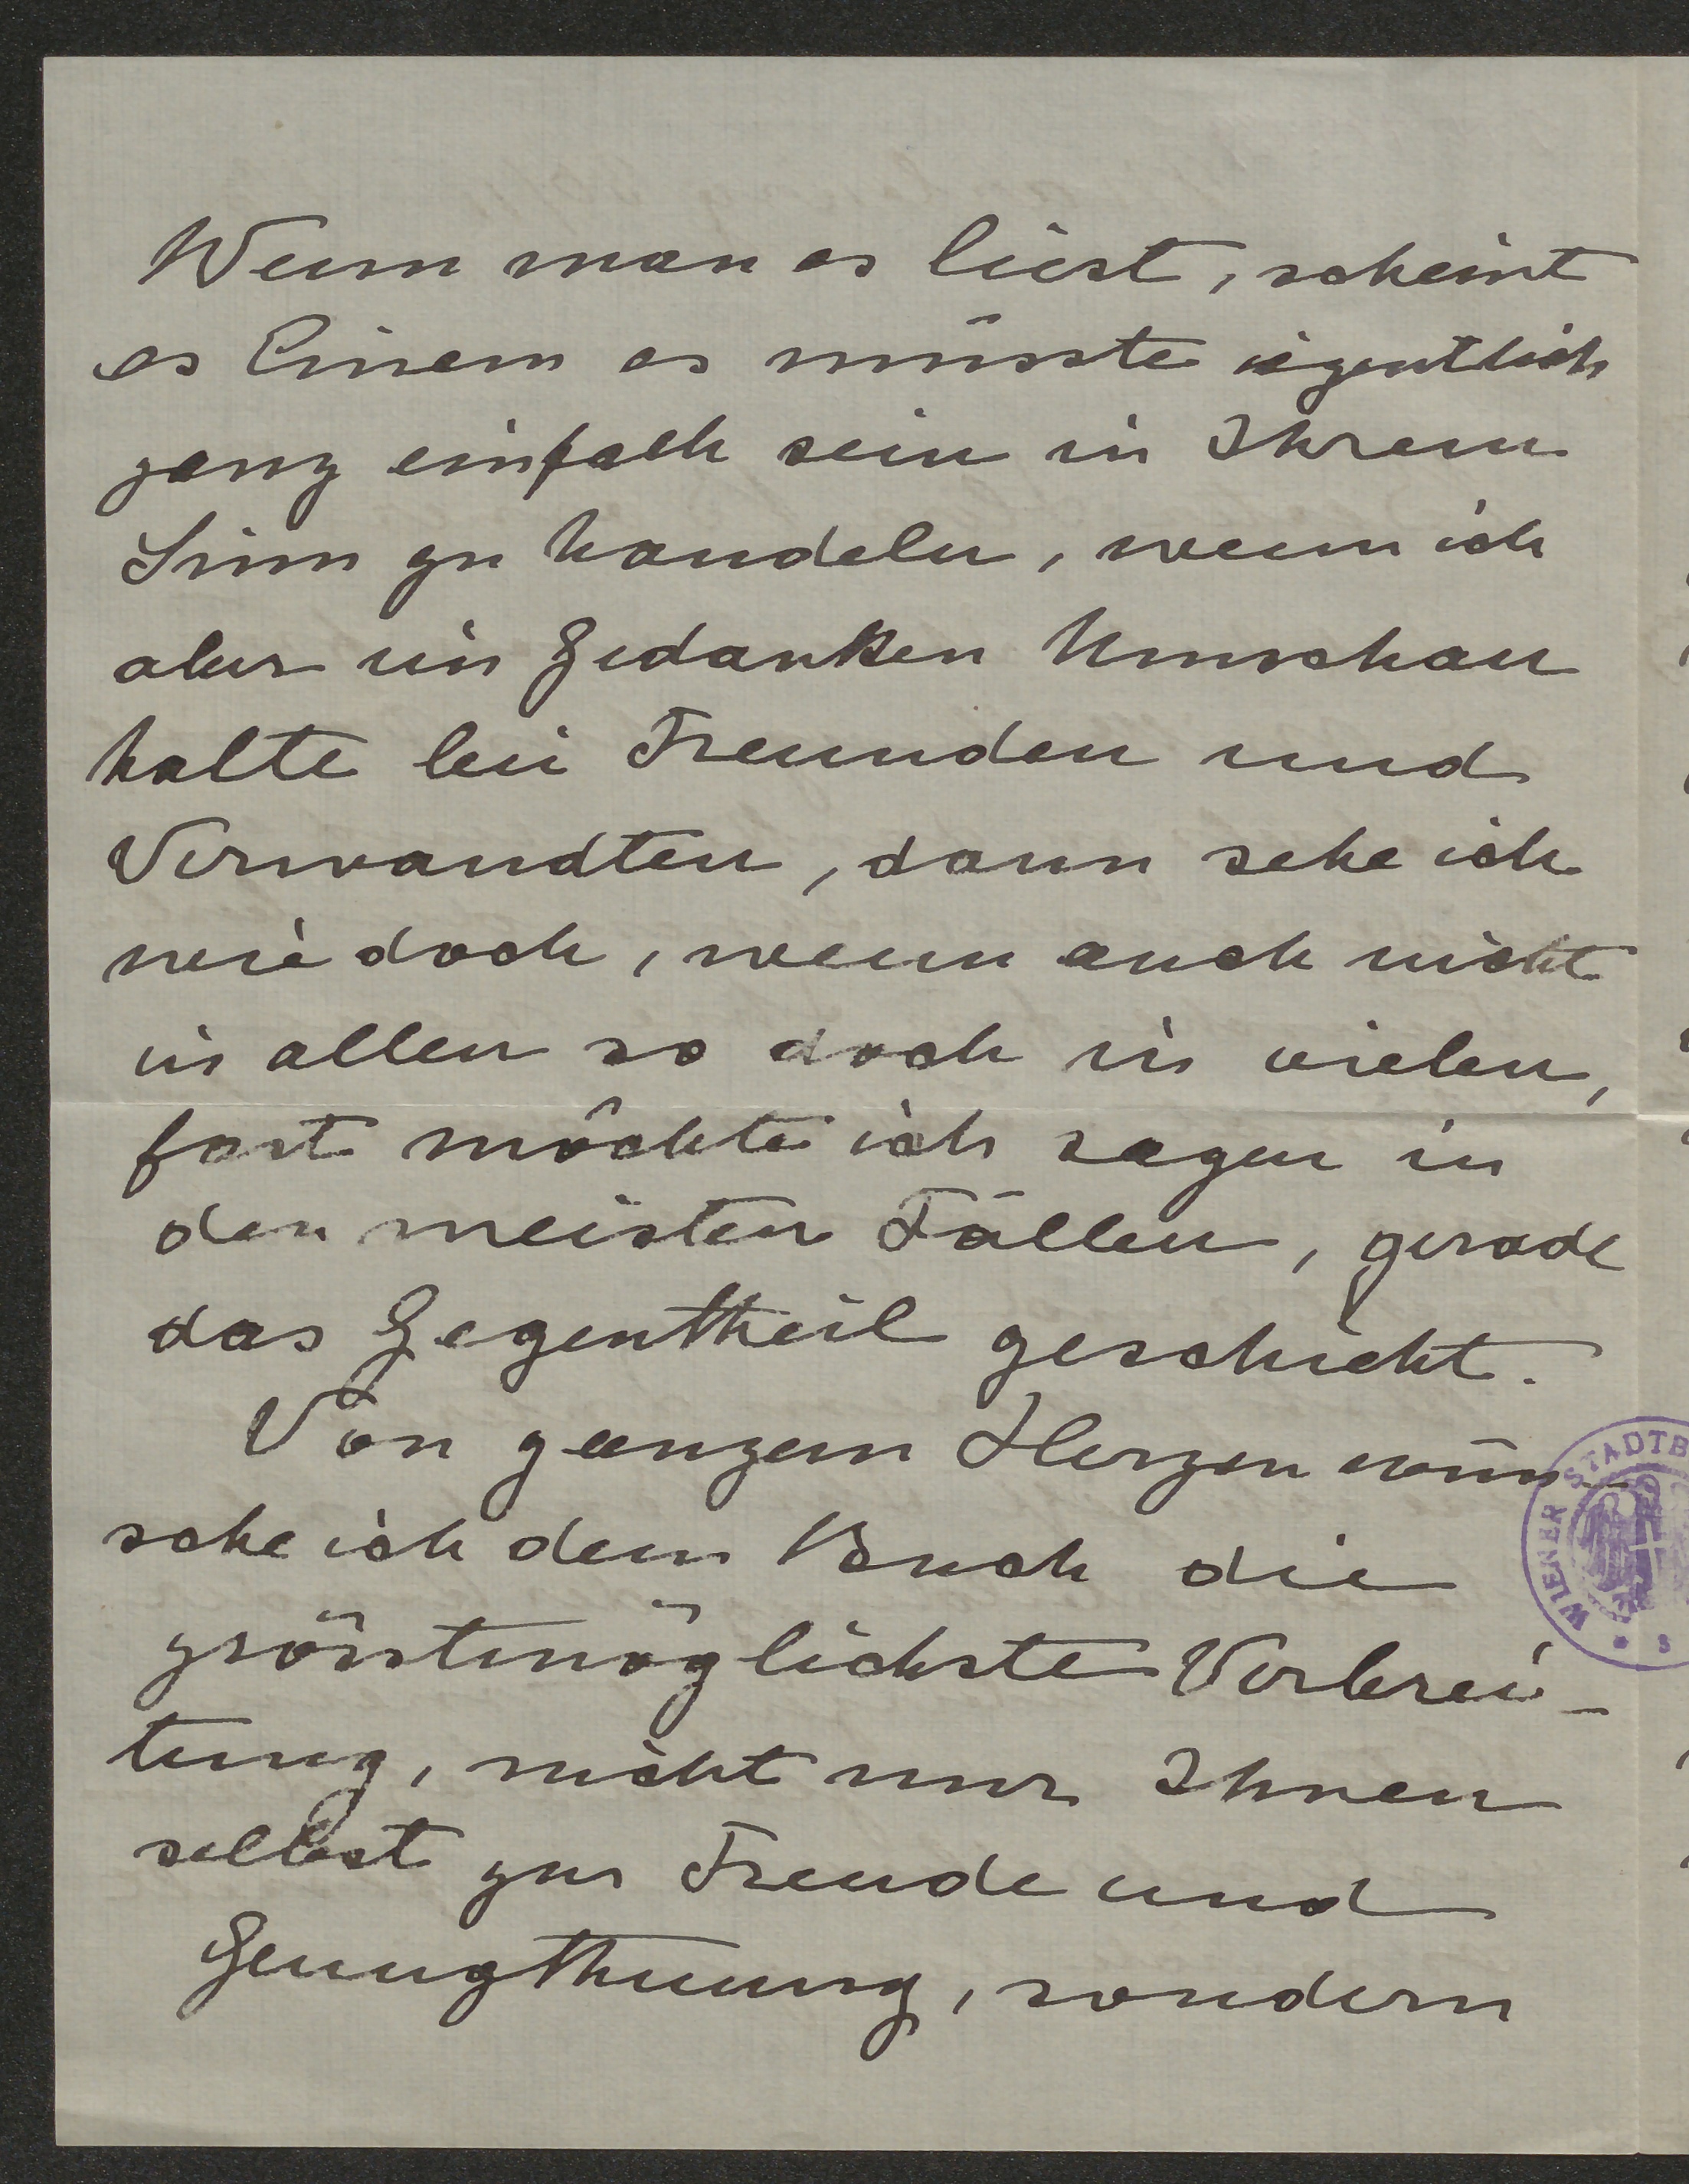 Wenn man es liest, scheint
es Einem es müsste eigentlich
ganz einfach sein in Ihrem
Sinn zu handeln, wenn ich
aber in Gedanken Umschau
halte bei Freunden und
Verwandten, dann sehe ich
wie doch, wenn auch nicht
in allen so doch in vielen,
fast möchte ich sagen in
den meisten Fällen, gerade
das Gegentheil geschieht.
Von ganzem Herzen wün-
sche ich dem Buch die
grösstmöglichste Verbrei-
tung, nicht nur Ihnen
selbst zur Freude und
Genugthuung, sondern
WIENER STADTB